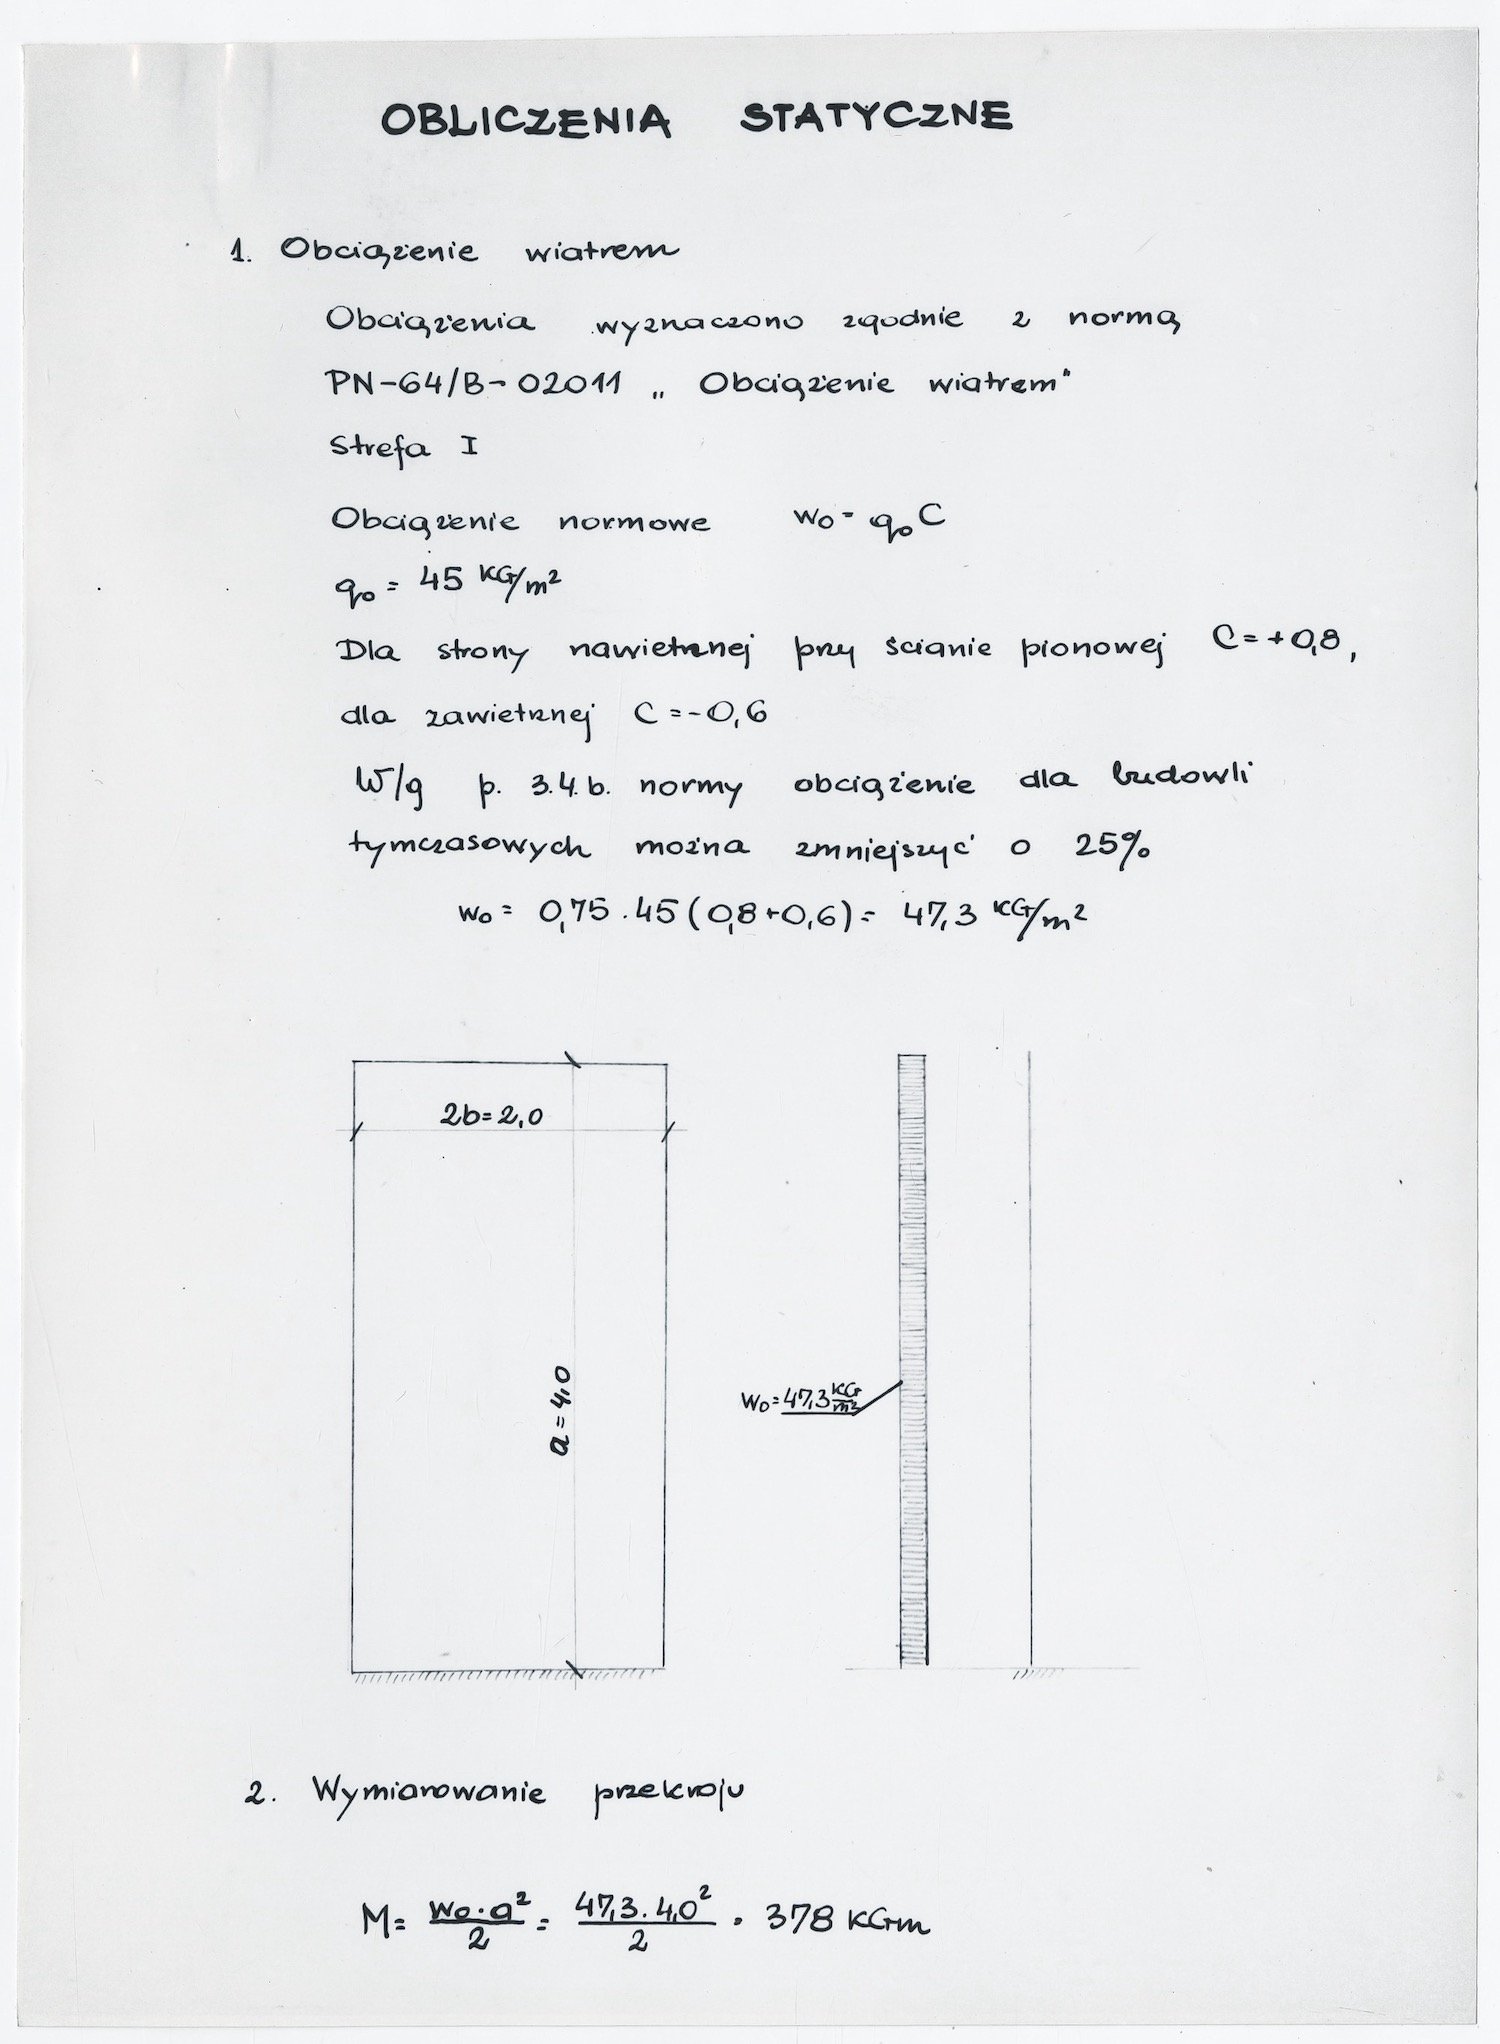 OBLICZENIA STATYCZNE
1. Obciążenie wiatrem
Obciążenia wyznaczono zgodnie z normą
PN-64/B-02011 „Obciążenie wiatrem"
Strefa I
Obciążenie normowe w₀ = q₀ C
q₀ = 45 KG/m²
Dla strony nawietrznej przy ścianie pionowej C = +0,8,
dla zawietrznej C = -0,6
W/g p. 3.4.b. normy obciążenie dla budowli
tymczasowych można zmniejszyć o 25%
w₀ = 0,75 . 45 (0,8+0,6) = 47,3 KG/m²
2b = 2,0
a = 4,0
w₀ = 47,3 KG/m²
2. Wymiarowanie przekroju
M = w₀·a²/2 = 47,3 . 4,0²/2 = 378 KGm